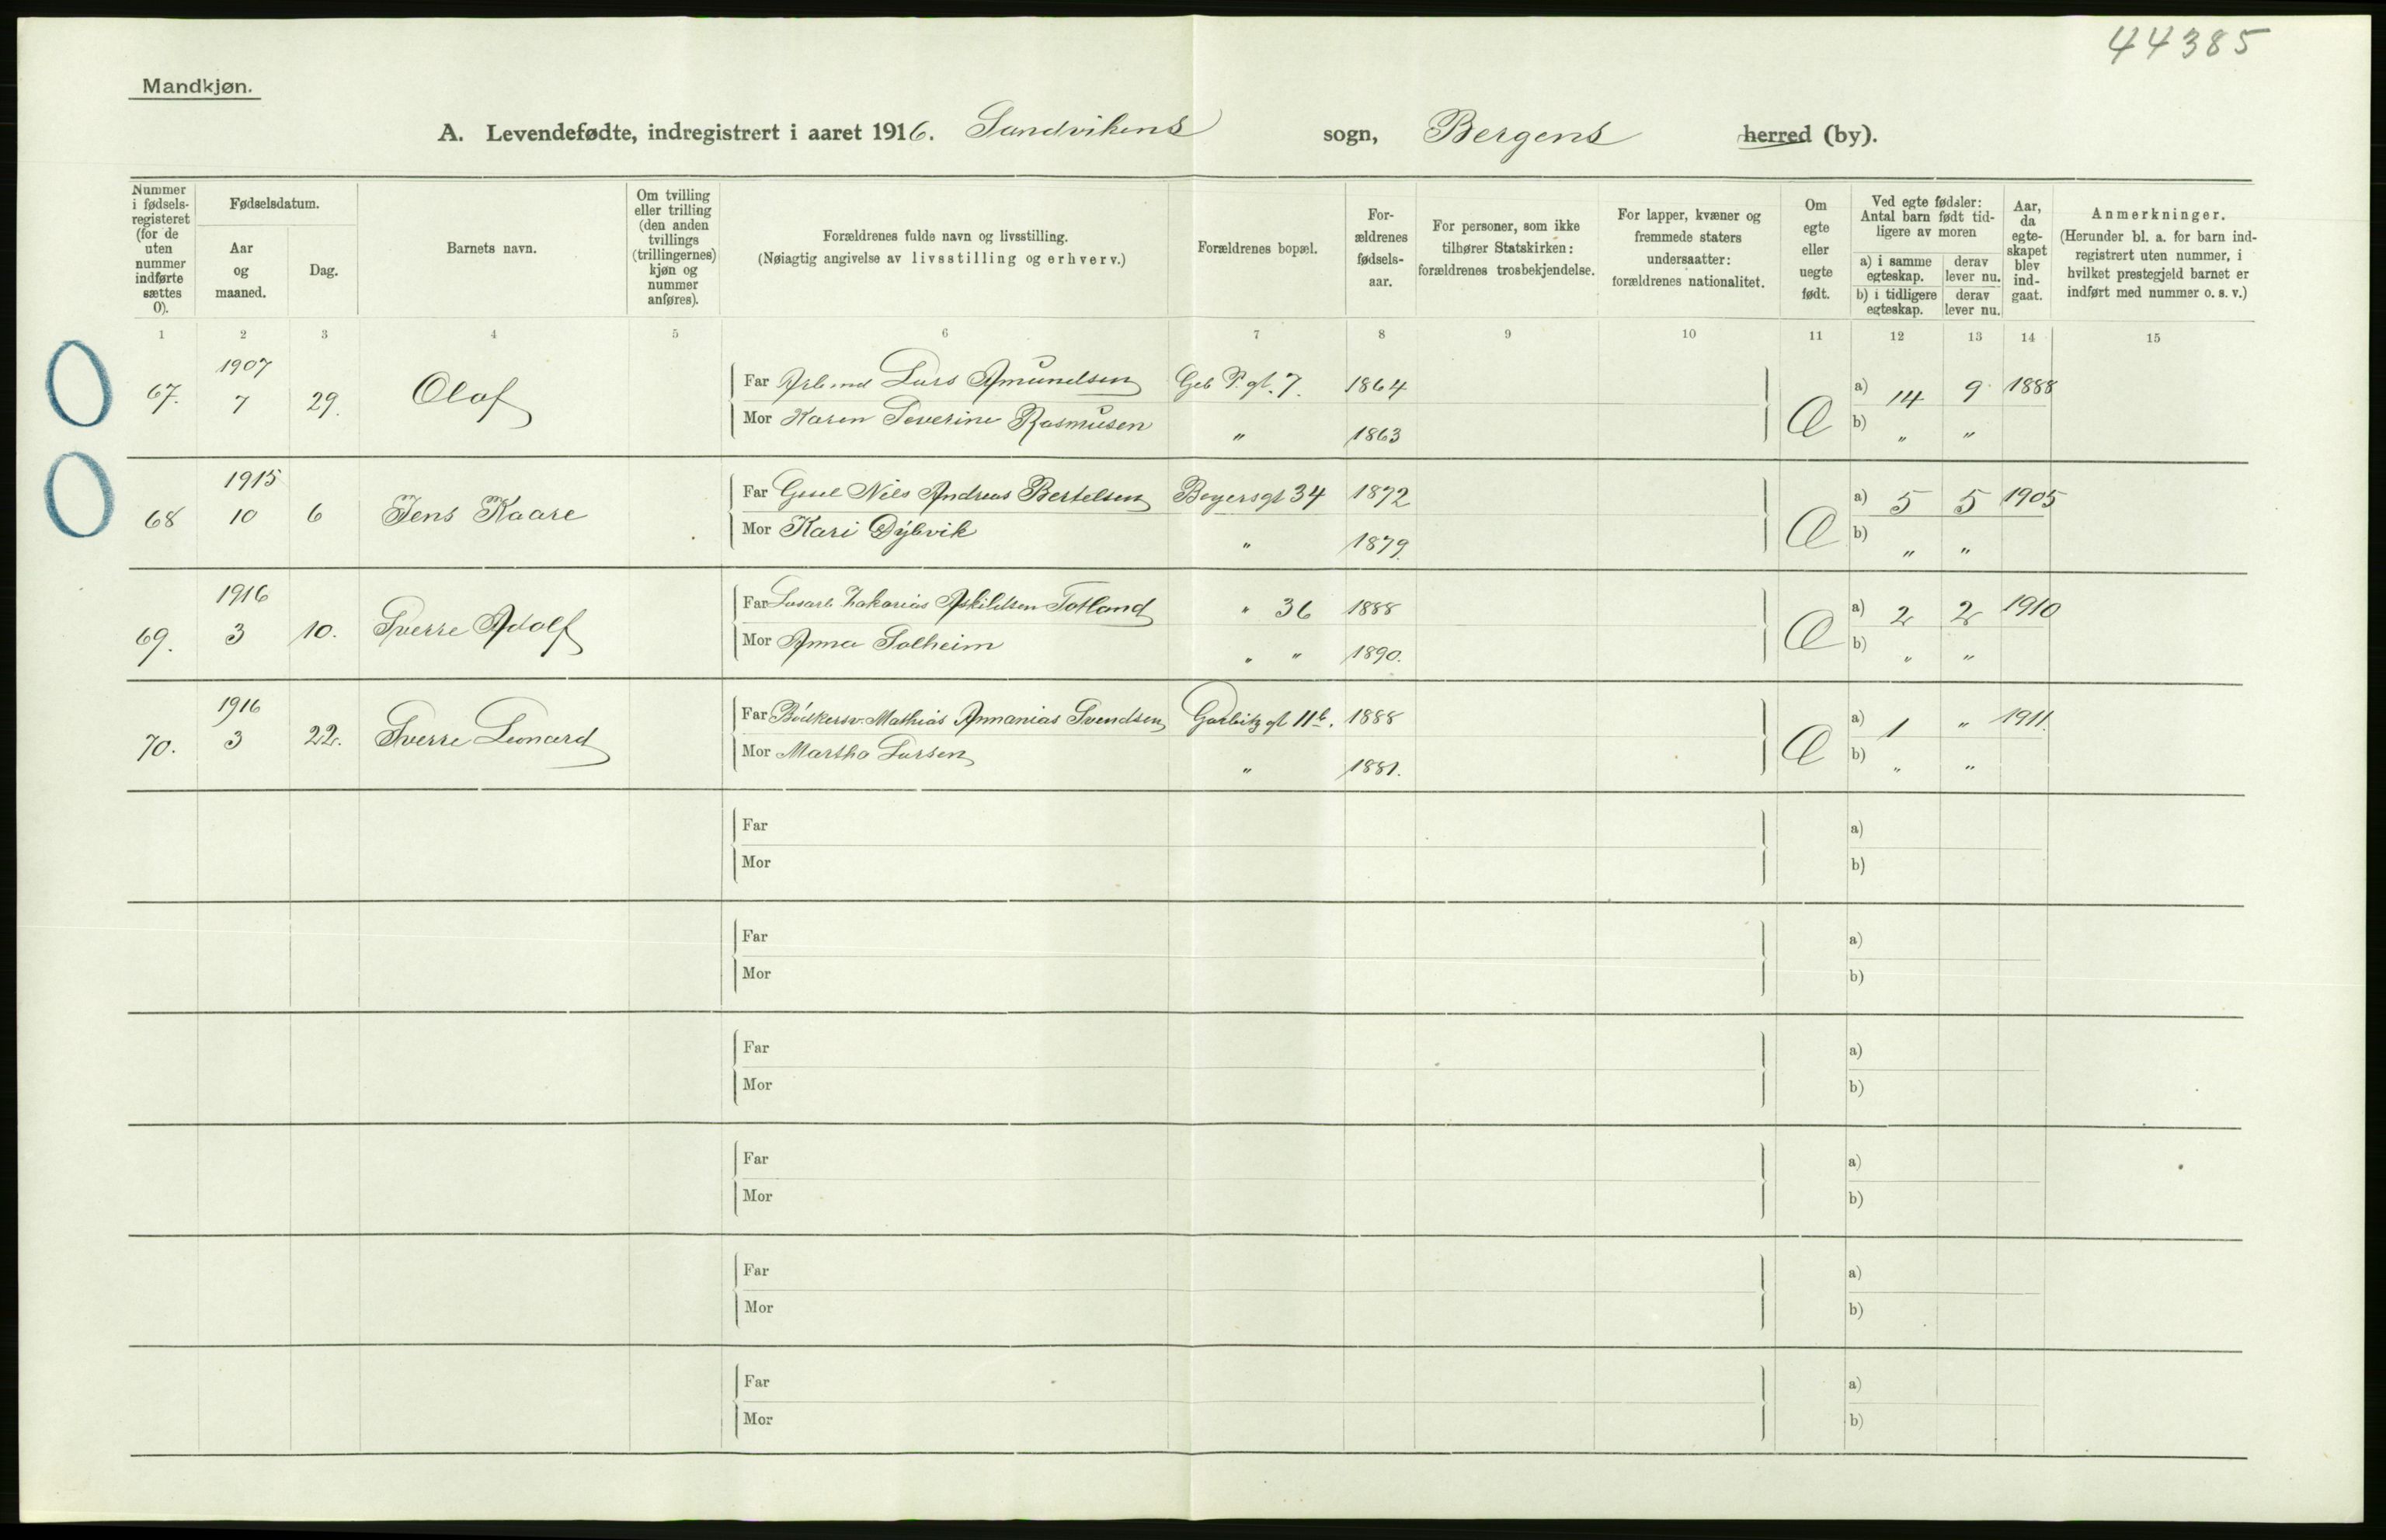 44385
Mandkjøn.
A. Levendefødte, indregistrert i aaret 1916. Sandvikens sogn, Bergens herred (by).
Nummer i fødselsregisteret (for de uten nummer indførte sættes 0).
Fødselsdatum.
Aar og maaned.
Dag.
Barnets navn.
Om tvilling eller trilling (den anden tvillings (trillingernes) kjøn og nummer anføres).
Forældrenes fulde navn og livsstilling.
(Nøiagtig angivelse av livsstilling og erhverv.)
Forældrenes bopæl.
Forældrenes fødselsaar.
For personer, som ikke tilhører Statskirken: forældrenes trosbekjendelse.
For lapper, kvæner og fremmede staters undersaatter: forældrenes nationalitet.
Om egte eller uegte født.
Ved egte fødsler: Antal barn født tidligere av moren
a) i samme egteskap.
derav lever nu.
b) i tidligere egteskap.
derav lever nu.
Aar, da egteskapet blev indgaat.
Anmerkninger.
(Herunder bl. a. for barn indregistrert uten nummer, i hvilket prestegjeld barnet er indført med nummer o. s. v.)
1 2 3 4 5 6 7 8 9 10 11 12 13 14 15
67. 1907 7 29. Olaf Far Arbmd Lars Amundsen Geb P. gt. 7. 1864 a) 14 9 1888
Mor Karen Severine Rasmusen " 1863 Æ b) " "
68 1915 10 6 Jens Kaare Far Nils Andreas Bertelsen Beyersgt 34 1872 a) 5 5 1905
Mor Kari Dybvik " 1879. Æ b) " "
69. 1916 3 10. Sverre Adolf Far Losarb Zakarias Askildsen Totland " 36 1888 a) 2 2 1910
Mor Anna Solheim " " 1890. Æ b) " "
70. 1916 3 22. Sverre Leonard Far Bødkersv. Mathias Annanias Svendsen gt 11b. 1888 a) 1 " 1911.
Mor Martha Larsen " 1881. Æ b) " "
Far a)
Mor b)
Far a)
Mor b)
Far a)
Mor b)
Far a)
Mor b)
Far a)
Mor b)
Far a)
Mor b)